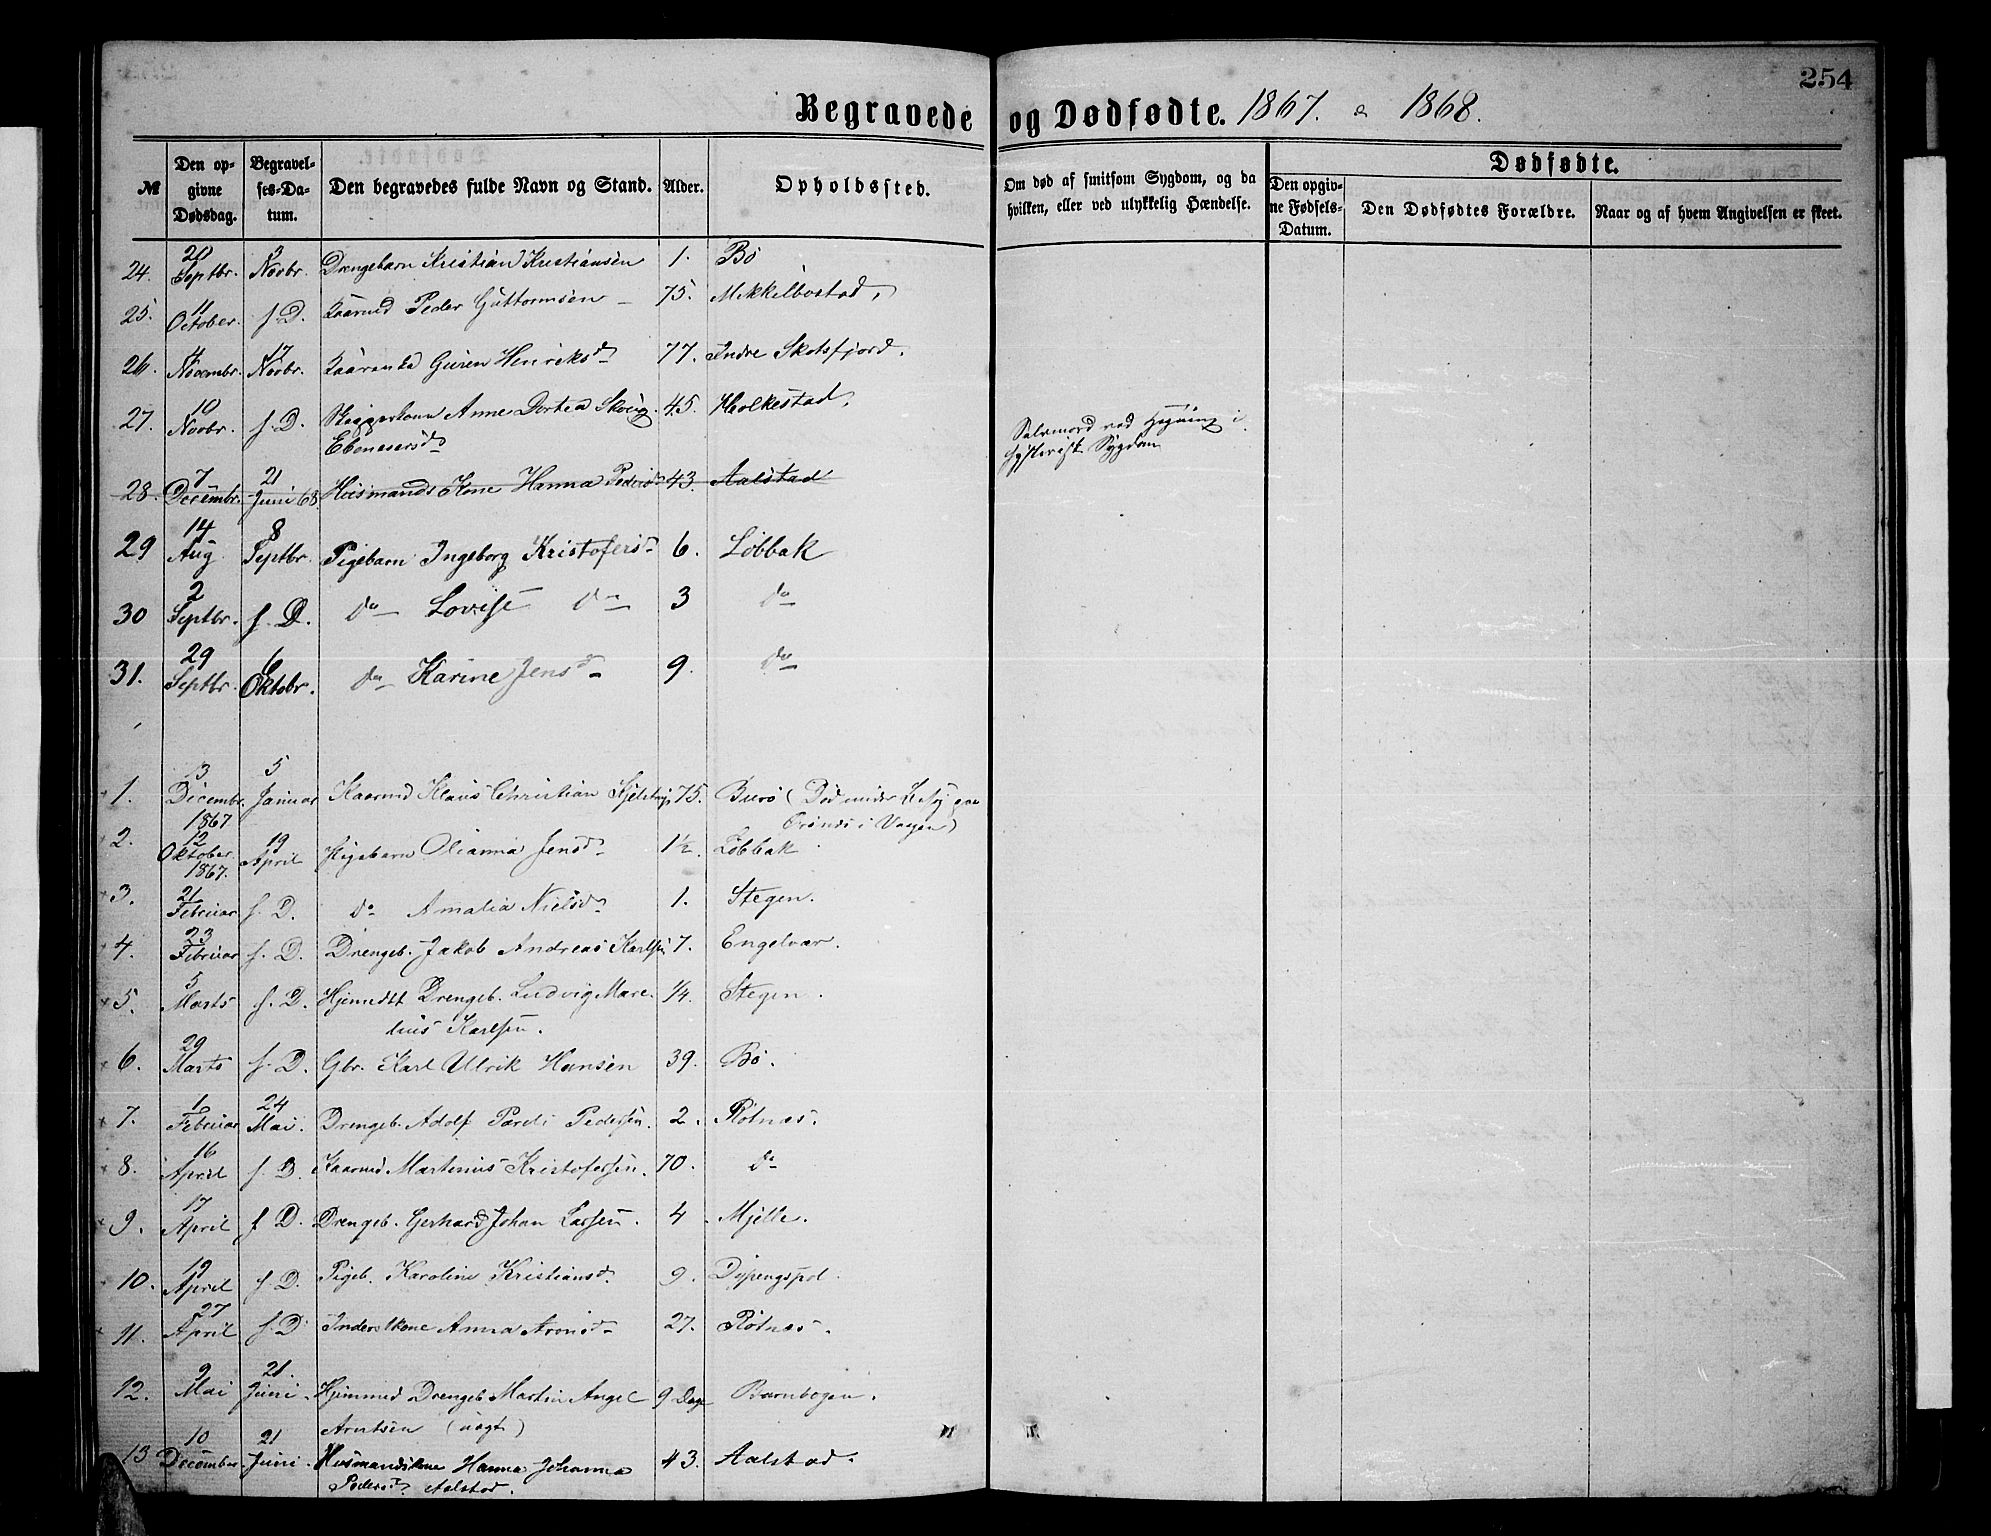 254
Begravede og Dødfødte. 1867. & 1868.
№ Den opgivne Dødsdag. Begravelses-Datum. Den begravedes fulde Navn og Stand. Alder. Opholdssted. Om død af smitsom Sygdom, og da hvilken, eller ved ulykkelig Hændelse. Dødfødte. Den opgivne Fødsels-Datum. Den Dødfødtes Forældre. Naar og af hvem Angivelsen er skeet.
24. 20 Septbr. 3 Novbr. Drengebarn Kristian Kristiansen 1. Bö
25. 11 October. s. D. Kaarmd Peder Guttormsen 75. Mikkelbostad.
26. 4 Novembr. 17 Novbr. Kaarenke Guren Henriksd 77. Indre Skotsfjord.
27. 10 Novbr. s. D. Anne Dortea 45. Holkestad.
Ebenesersd
Selvmord ved Hægning i
hysterisk Sygdom
28. 7 Decembr. 21 Juni 68. Huusmands Kone Hanna Pedersd 43. Aalstad
29 14 Aug 8 Septbr. Pigebarn Ingeborg Kristofersd 6. Löbbak
30 2 Septbr. s. D. do Lovise do 3 do
31. 29 Septbr. 6 Oktobr. do Karine Jensd 9. do
1. 13 Decembr. 1867 5 Januar Kaarmd Klaus Christian Kjelstrup 75. Burö (Död under
i Vaagen)
2. 12 Oktober 1867. 19 April Pigebarn Olianna Jensd 1½ Löbbak
3. 21 Februar s. D. do Amalia Nielsd 1. Stegen.
4. 23 Februar s. D. Drengeb. Jakob Andreas Karlsen 7. Engelvær.
5. 5 Marts s. D. Hjemmedt Drengeb. Ludvig Mare-
lius Karlsen. ¼. Stegen.
6. 29 Marts s. D. Gbr. Karl Ulrik Hansen 39. Bö.
7. 1 Februar 24 Mai. Drengeb. Adolf Pareli Pedersen. 2. Rötnes.
8. 16 April s. D. Kaarmd Martinus Kristofersen. 70. do
9. 17 April s. D. Drengeb. Gerhard Johan Larsen. 4. Mjelle.
10. 19 April s. D. Pigeb. Karoline Kristiansd. 9. Dypengspol.
11. 27 April s. D. Inders Kone Anna Aronsd 27. Rötnes.
12. 9 Mai 21. Juni. Hjemmed Drengeb. Martin Angel 9 Dage Bornbogen.
Arntsen (uægt)
13 10 December. 21 Juni. Husmandskone Hanna Johanna 43. Aalstad.
Pedersd. Aalstad.